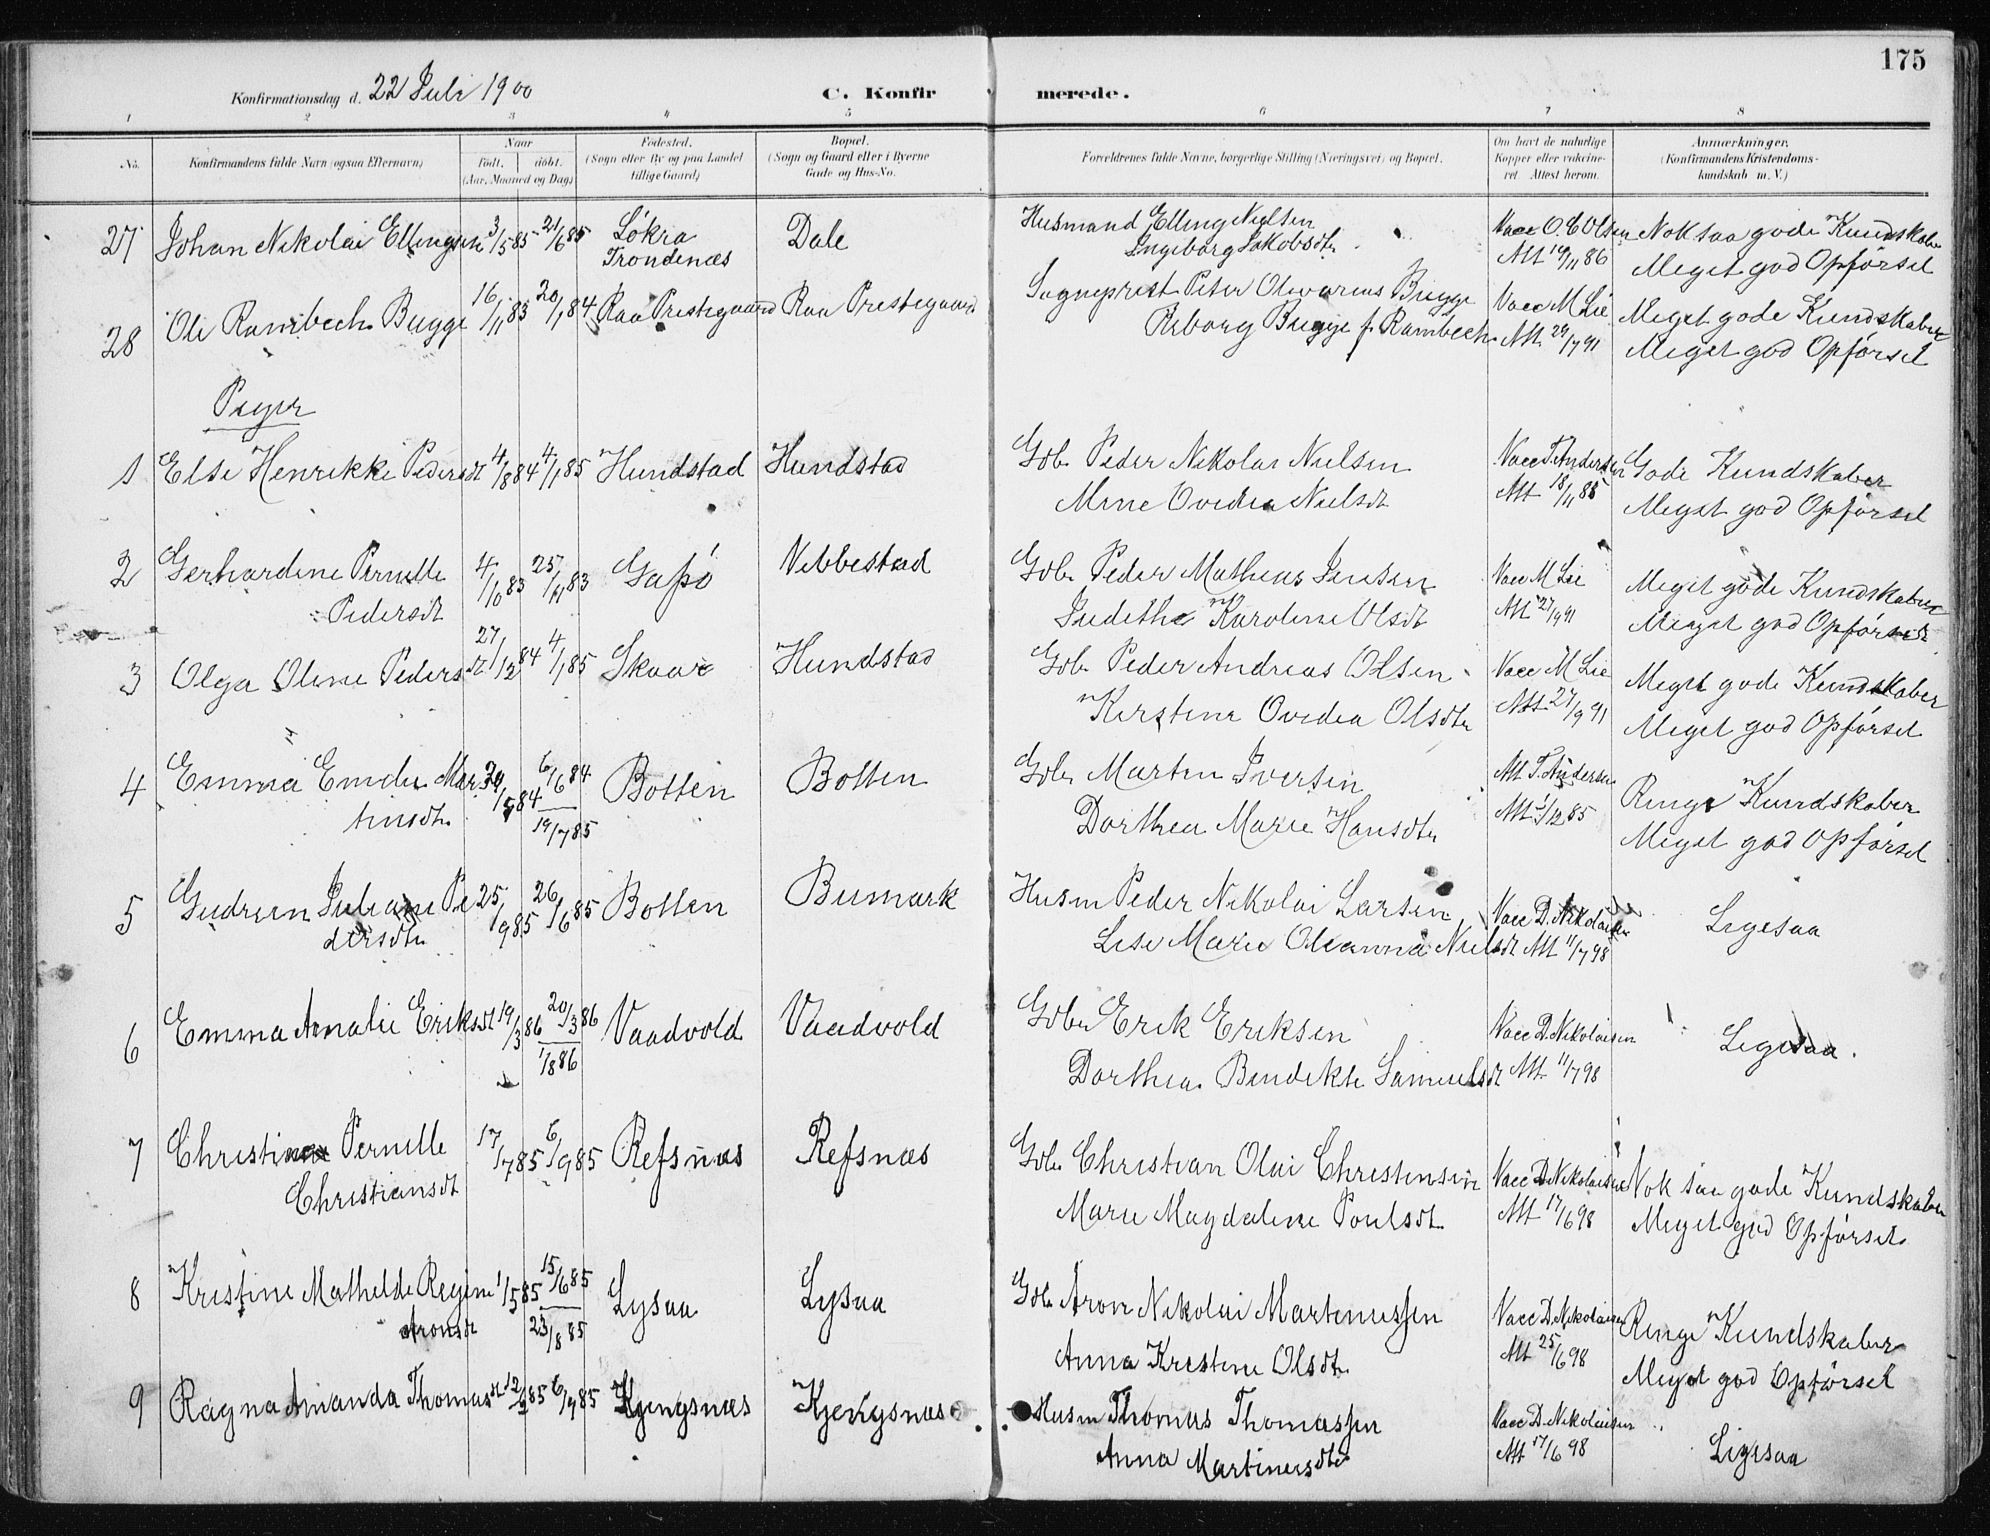 175
Konfirmationsdag d. 22 Juli 1900
C. Konfirmerede.
1 2 3 4 5 6 7 8
No.
Konfirmandens fulde Navn (ogsaa Efternavn)
Naar
født. døbt.
(Aar, Maaned og Dag)
Fødested.
(Sogn eller By og paa Landet
tillige Gaard)
Bopæl.
(Sogn og Gaard eller i Byerne
Gade og Hus-No.
Forældrenes fulde Navne, borgerlige Stilling (Næringsvei) og Bopæl.
Om havt de naturlige
Kopper eller vakcine-
ret. Attest herom.
Anmærkninger.
(Konfirmandens Kristendoms-
kundskab m. V.)
27 Johan Nikolai Ellingsen 3/5 85 21/6 85 Løkra Dale Husmand Elling Nielsen Vacc O. C Olsen Nok saa gode Kundskaber
Trondenæs Ingeborg Jakobsdtr Att 19/11 86 Meget god Opførsel
28 Ole Rambech Bugge 16/11 83 20/1 84 Raa Prestegaard Raa Prestegaard Sogneprest Peter Olivarius Bugge Vacc M Lie Meget gode Kundskaber
Bugge f. Rambech Att 29/7 91 Meget god Opførsel
Piger
1 Else Henrikke Pedersdt 4/8 84 4/1 85 Hundstad Hundstad Gbr. Peder Nikolai Nielsen Vacc T. Andersen Gode Kundskaber
Ovedia Nielsdt Att 18/11 85 Meget god Opførsel
2 Gerhardine Pernille 4/10 83 25/11 83 Gapø Vebbestad Gbr. Peder Mathias Jensen Vacc M Lie Meget gode Kundskaber
Pedersdt Judithe Karoline Olsdt Att 27/9 91 Meget god Opførsel
3 Olga Oline Pedersdt 27/12 84 4/1 85 Skaar Hundstad Gbr. Peder Andreas Olsen Vacc M Lie Meget gode Kundskaber
Kirstine Ovedia Olsdtr Att 27/9 91 Meget god Opførsel
4 Emma Emelie Mar- /5 84 6/6 84 Botten Botten Gbr Marten Iversen Att T. Andersen Ringe Kundskaber
tinsdtr. 19/7 85 Dorthea Marie Hansdtr Att /12 85 Meget god Opførsel
5 Gudrun Juliane Pe 25/9 85 26/6 85 Botten Bumark Husm Peder Nikolai Larsen Vacc D. Nikolaisen Ligesaa
dersdtr Lise Marie Oleanna Nielsdt Att 11/7 98
6 Emma Amalie Eriksdt 19/3 86 20/3 86 Vaadvold Vaadvold Gbr Erik Eriksen Vacc D. Nikolaisen Ligesaa.
1/8 86 Dorthea Bendikte Samuelsdt Att 11/7 98
7 Pernille 17/7 85 6/9 85 Refsnæs Refsnæs Gbr. Christian Olai Christensen Vacc D. Nikolaisen Nok saa gode Kundskaber
Christiansdt Marie Magdalene Poulsdt Att 17/6 98 Meget god Opførsel.
8 Kristine Mathilde Regine 1/5 85 15/6 85 Lysaa Lysaa Gbr. Aron Nikolai Martenussen Vacc D. Nikolaisen Ringe Kundskaber
Aronsdt 23/8 85 Anna Kristine Olsdtr Att 25/6 98 Meget god Opførsel
9 Ragna Amanda Thomasdt 85 6/9 85 Kjengsnæs Kjengsnæs Husm Thomas Thomassen Vacc D. Nikolaisen
Anna Martinusdtr Att 17/6 98 Ligesaa